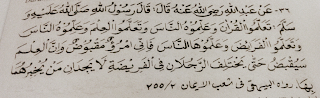 ٣٦- عَنْ عَبْدِ اللهِ رَضِيَ اللهُ عَنْهُ قَالَ: قَالَ رَسُوْلُ اللهِ صَلَّى اللهُ عَلَيْهِ وَ
سَلَّمَ: تَعَلَّمُوا الْقُرْآنَ وَعَلِّمُوْهُ النَّاسَ وَتَعَلَّمُوا الْعِلْمَ وَعَلِّمُوْهُ النَّاسَ
وَتَعَلَّمُوا الْفَرَائِضَ وَعَلِّمُوْهَا النَّاسَ فَإِنِّيْ امْرُؤٌ مَقْبُوْضٌ وَإِنَّ الْعِلْمَ
سَيُقْبَضُ حَتّٰى يَخْتَلِفَ الرَّجُلَانِ فِي الْفَرِيْضَةِ لَا يَجِدَانِ مَنْ يُخْبِرُهُمَا
بِهَا. رواه البيهقي في شعب الايمان ٢/٢٥٥